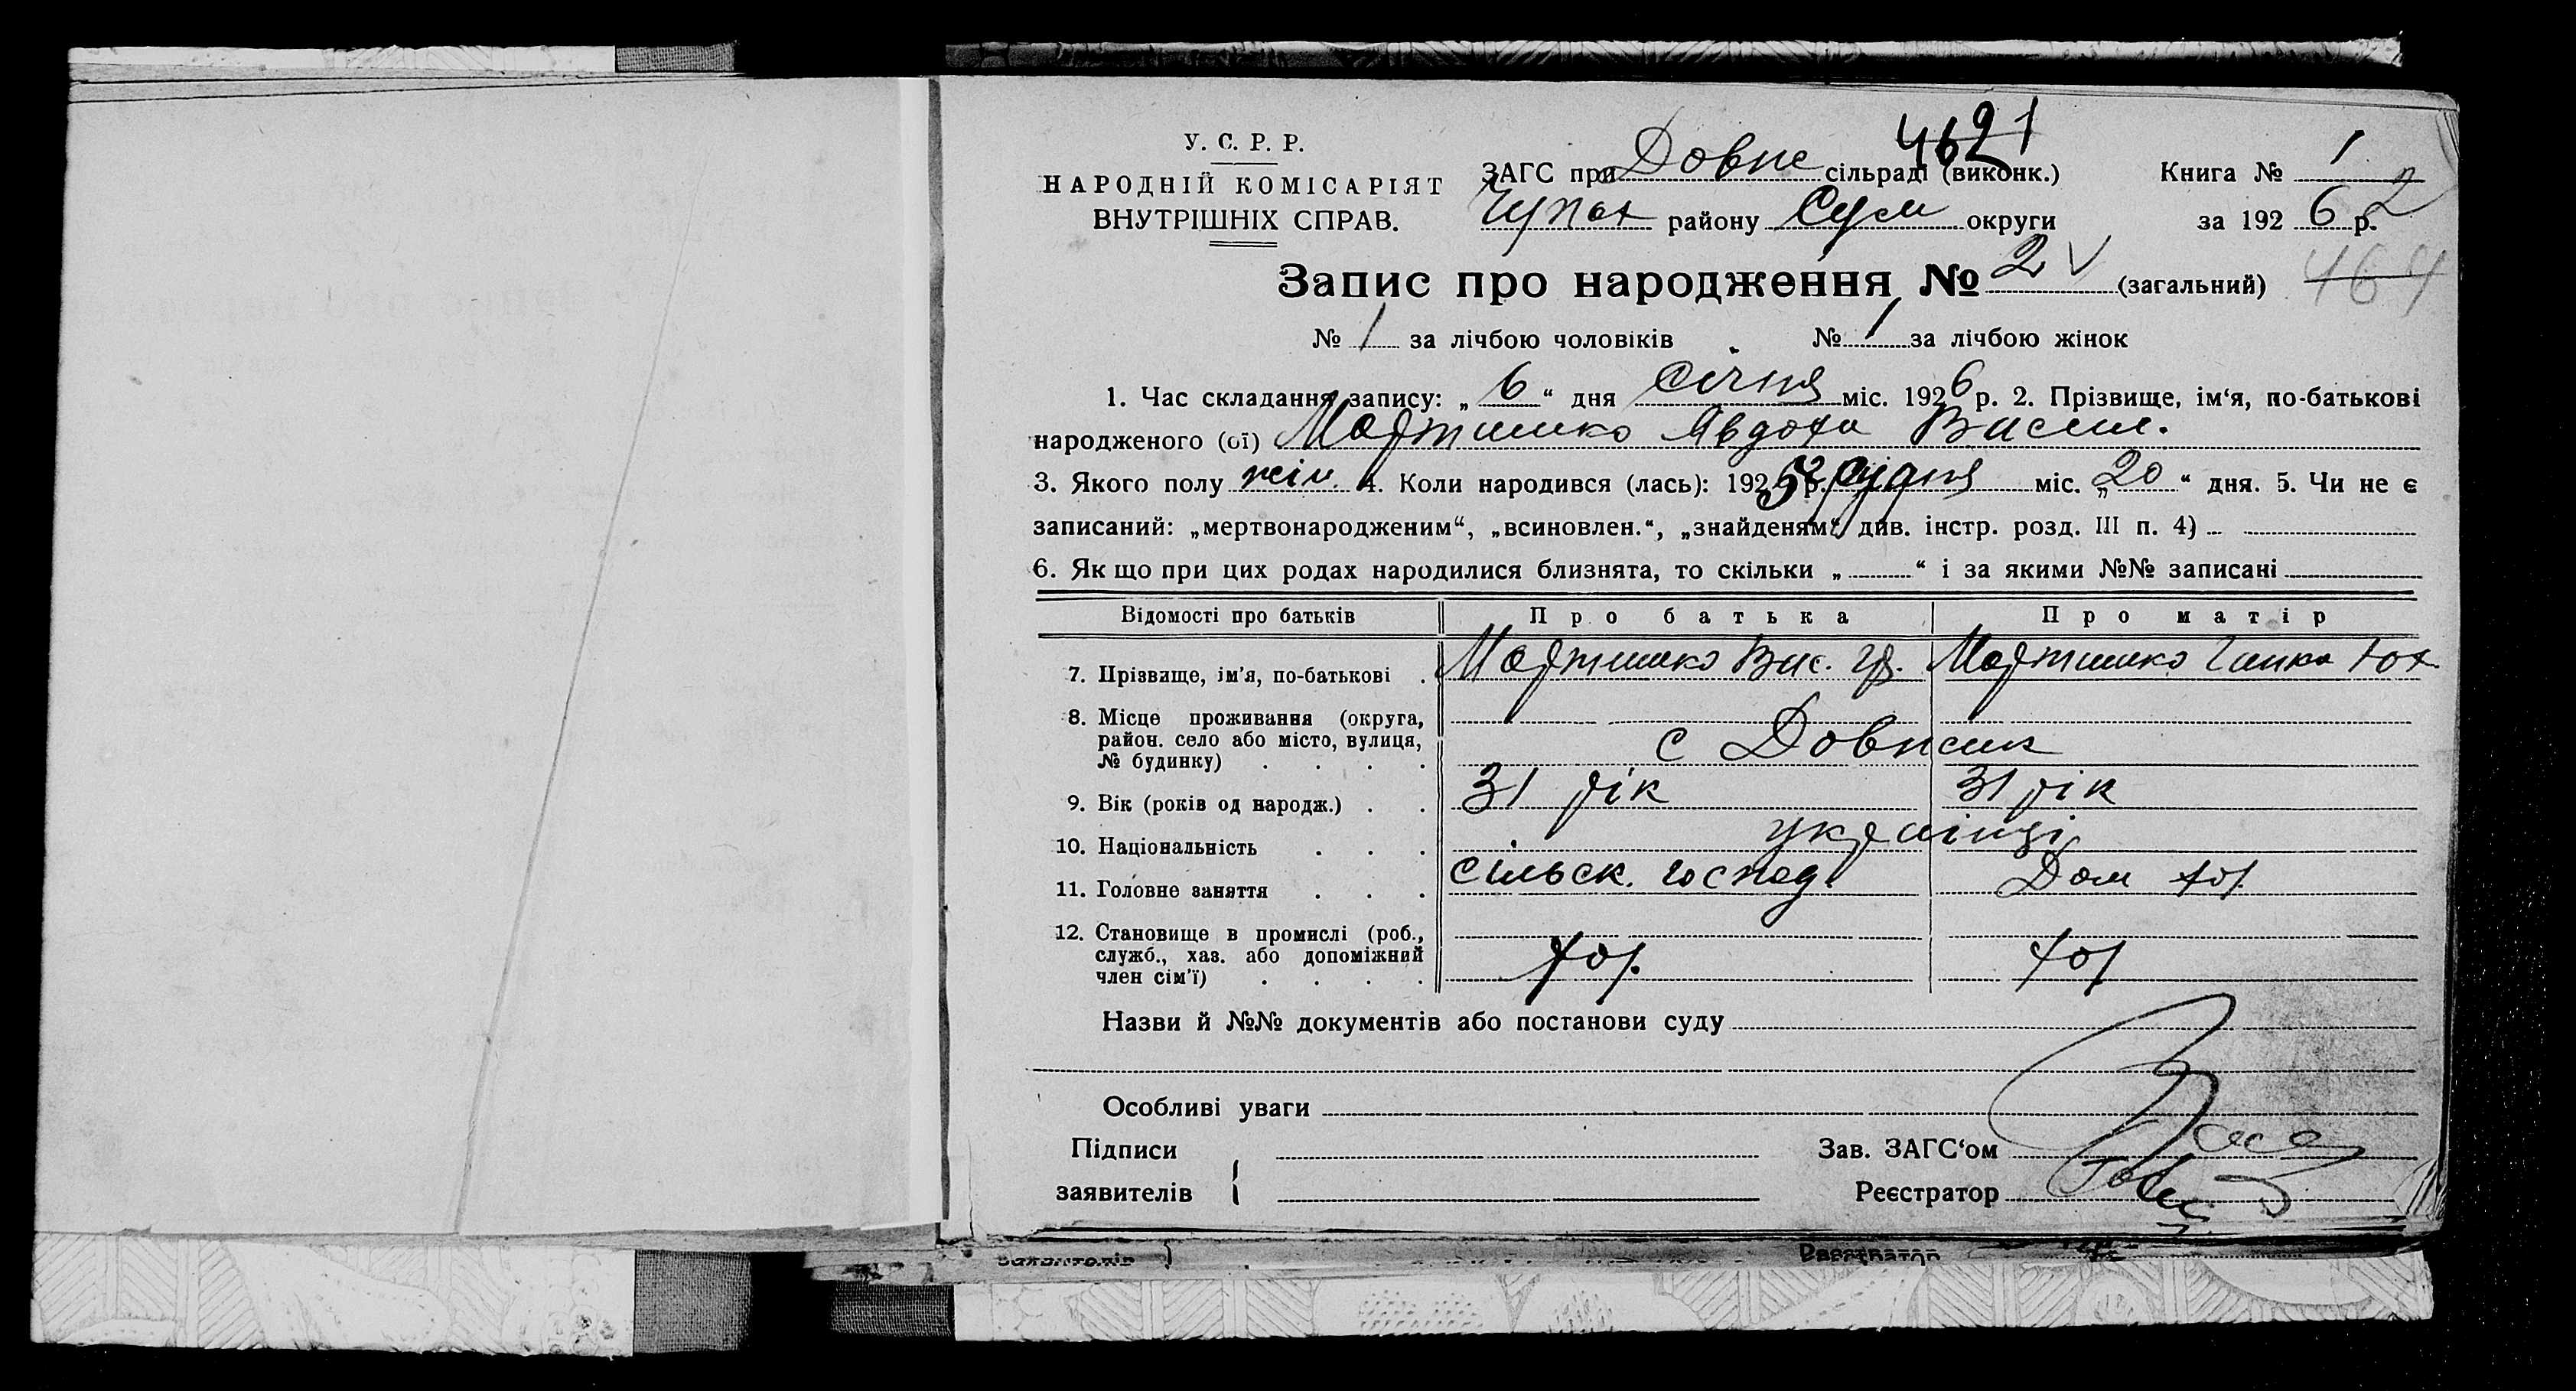 4621
У. С. Р. Р.
НАРОДНІЙ КОМІСАРІЯТ
ВНУТРІШНІХ СПРАВ.
ЗАГС при Довжс сільраді (виконк.)
Чупах району Сум округи
Книга № 1
за 1926 р.
2
Запис про народження № 2 (загальний)
464
№ 1 за лічбою чоловіків № 1 за лічбою жінок
1. Час складання запису: „6“ дня січня міс. 1926 р. 2. Прізвище, ім‘я, по-батькові
народженого (ої) Мартишко Явдоха Васил.
3. Якого полу жін. 4. Коли народився (лась): 1925 р. грудня міс. „20“ дня. 5. Чи не є
записаний: „мертвонародженим“, „всиновлен.“, „знайденям“ див. інстр. розд. III п. 4)
6. Як що при цих родах народилися близнята, то скільки „ “ і за якими №№ записані
Відомості про батьків Про батька Про матір
7. Прізвище, ім‘я, по-батькові Мартишко Вас. Гр. Мартишко Ганна Юх.
8. Місце проживання (округа,
район. село або місто, вулиця,
№ будинку) с
9. Вік (років од народж.) 31 рік 31 рік
10. Національність українці
11. Головне заняття сільск. господ. Дом хоз.
12. Становище в промислі (роб.,
служб., хаз. або допоміжний
член сім‘ї) хоз. хоз
Назви й №№ документів або постанови суду
Особливі уваги
Підписи
заявителів
Зав. ЗАГС‘ом
Реєстратор
заявителів Реєстратор